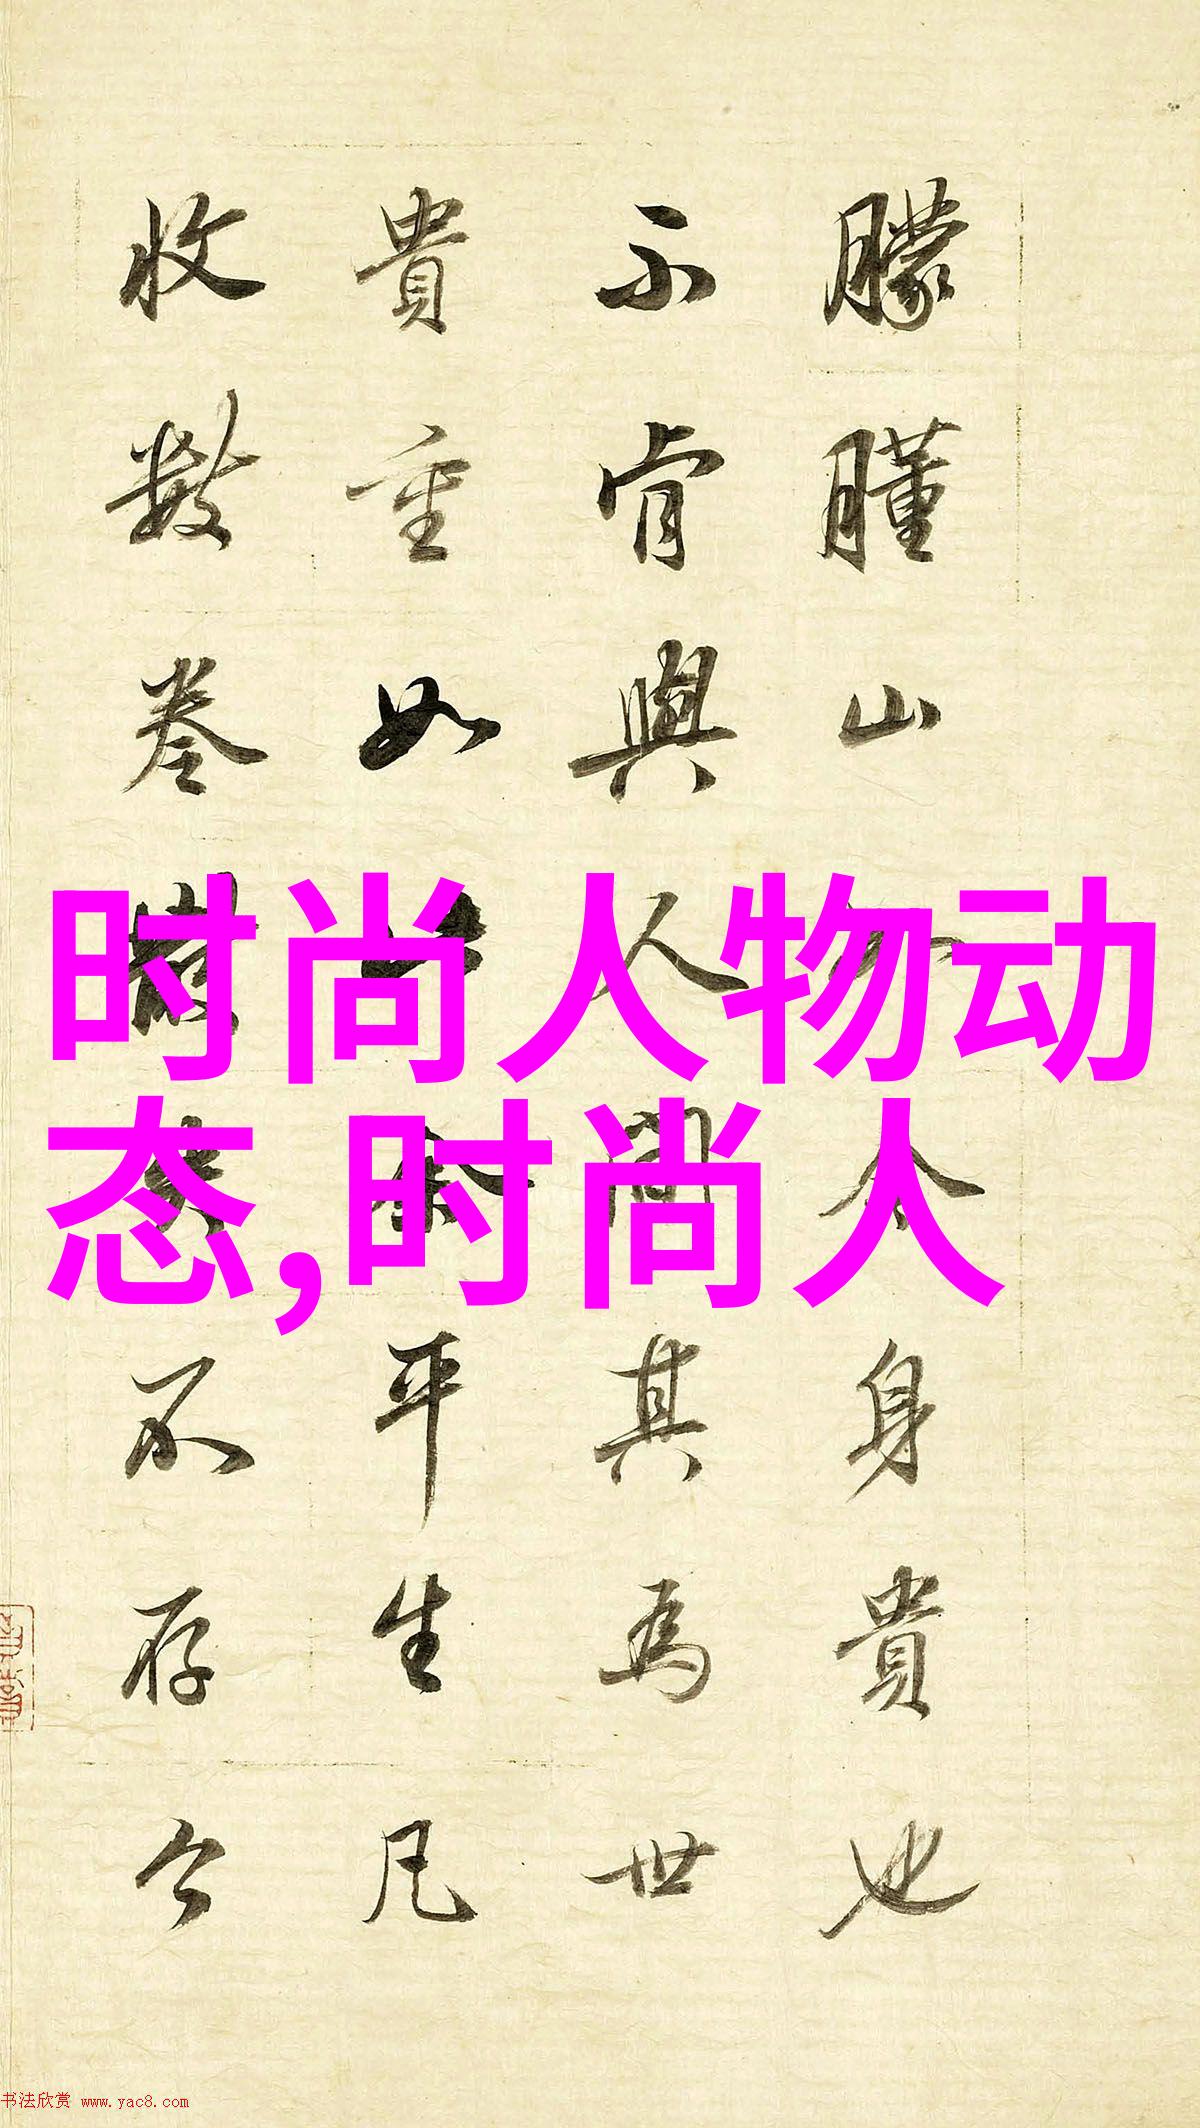 朦朣山今身貴也
不肯與人間其為世
貴重如此余平生凡
收數卷不存今
时尚人物动
态,时尚人
书法欣赏 www.yac8.com